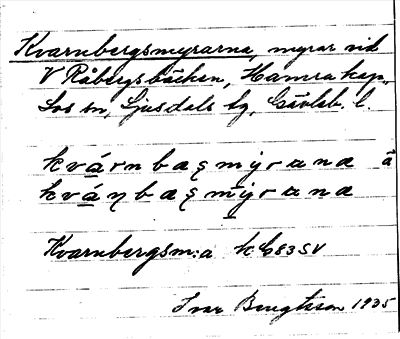 Kvarnbergsmyrarna, myrar vid
V Råbergsbäcken, Hamra kap.,
Los sn, Ljusdals tg, Gävleb. l.
kvárnbæʂmýrana å
kváɳbæʂmýrana
Kvarnbergsm:a k G83SV
Ivar Bengtsson 1935